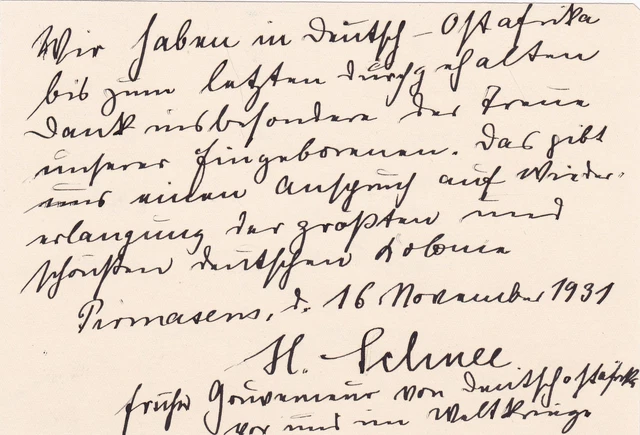 Wir haben in Deutsch-Ostafrika
bis zum letzten durchgehalten
Dank insbesondere der Treue
unserer Eingeborenen. Das gibt
uns einen Anspruch auf Wieder-
erlangung der größten und
schönsten deutschen Kolonie
Pirmasens, d. 16 November 1931
H. Schnee
früher Gouverneur von Deutschostafrika
vor und im Weltkriege